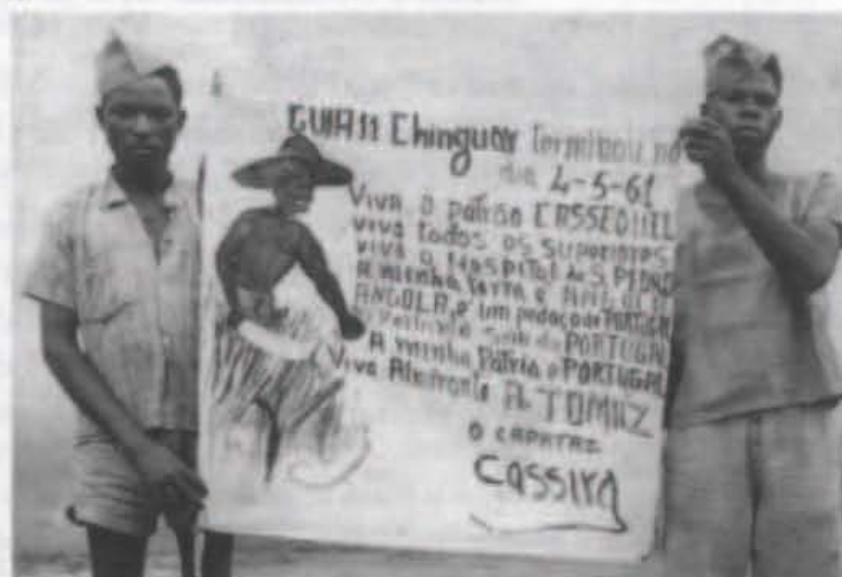 GUIA 11 Chinguar terminou no
dia 4-5-61
Viva o patrão CASSEQUEL
viva todos os superiores
viva o Hospital de S. PEDRO
A minha terra é ANGOLA
ANGOLA, é um pedaço de PORTUGAL
PORTUGAL
A minha Pátria é PORTUGAL
Viva Almirante A. TOMAZ
O CAPATAZ
Cassira